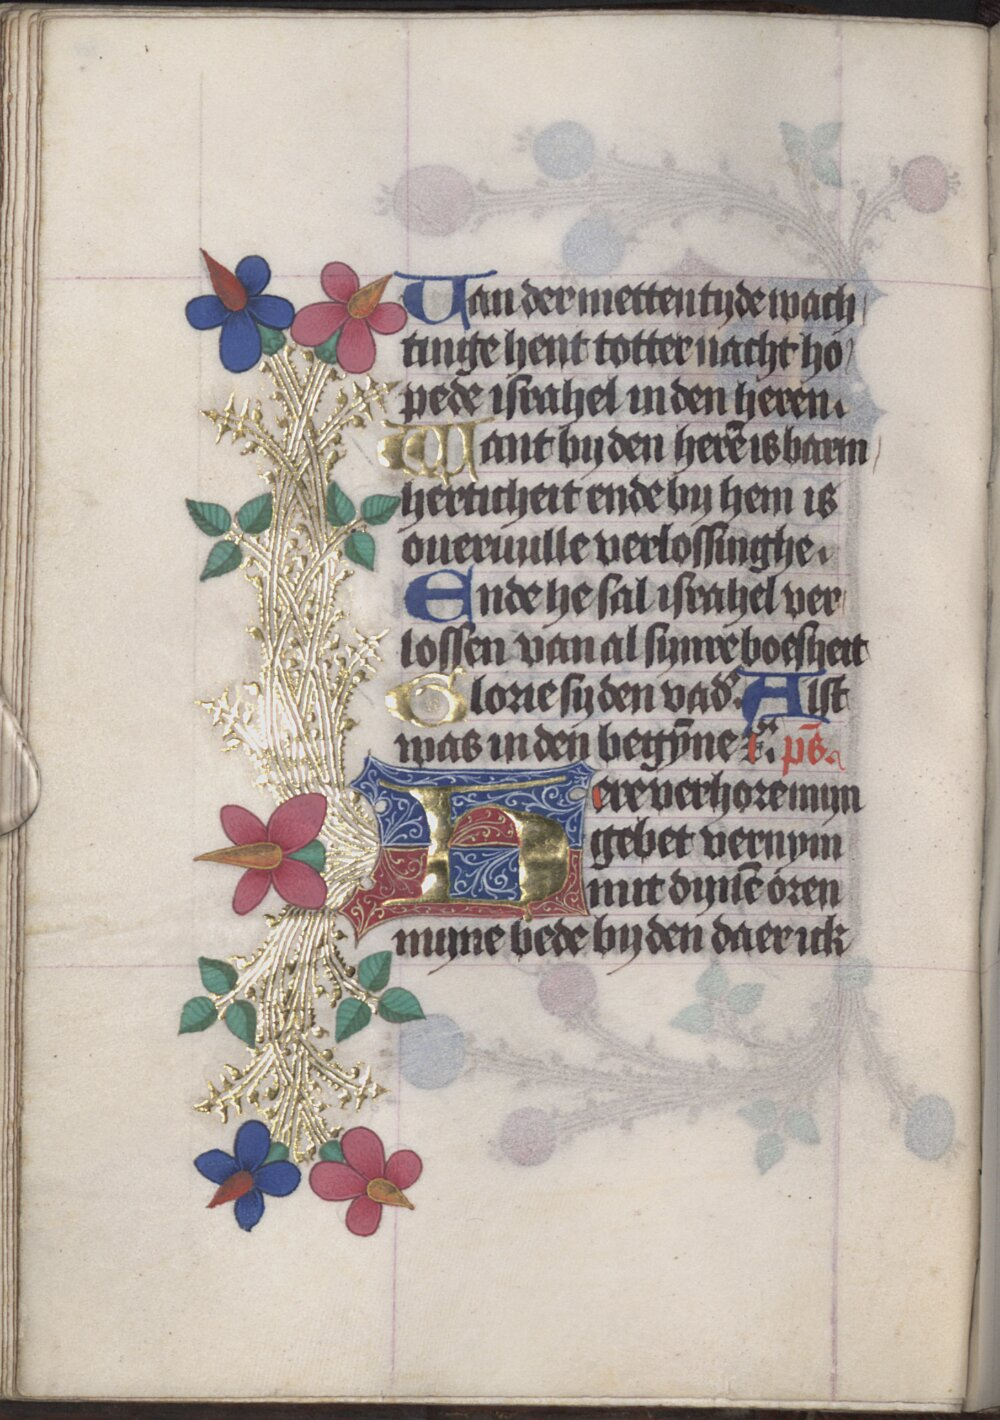 Van der metten tyde wach
tinge hent totter nacht ho
pede israhel in den heren.
Want by den herē is barm
herticheit ende by hem is
overvulle verlossinghe.
Ende he sal israhel ver
lossen van al synre boesheit
Glorie sy den vad͛. Alst
was in den begȳne ps̄
Here verhore myn
gebet vernym
mit dynē oren
myne bede by den daer ick